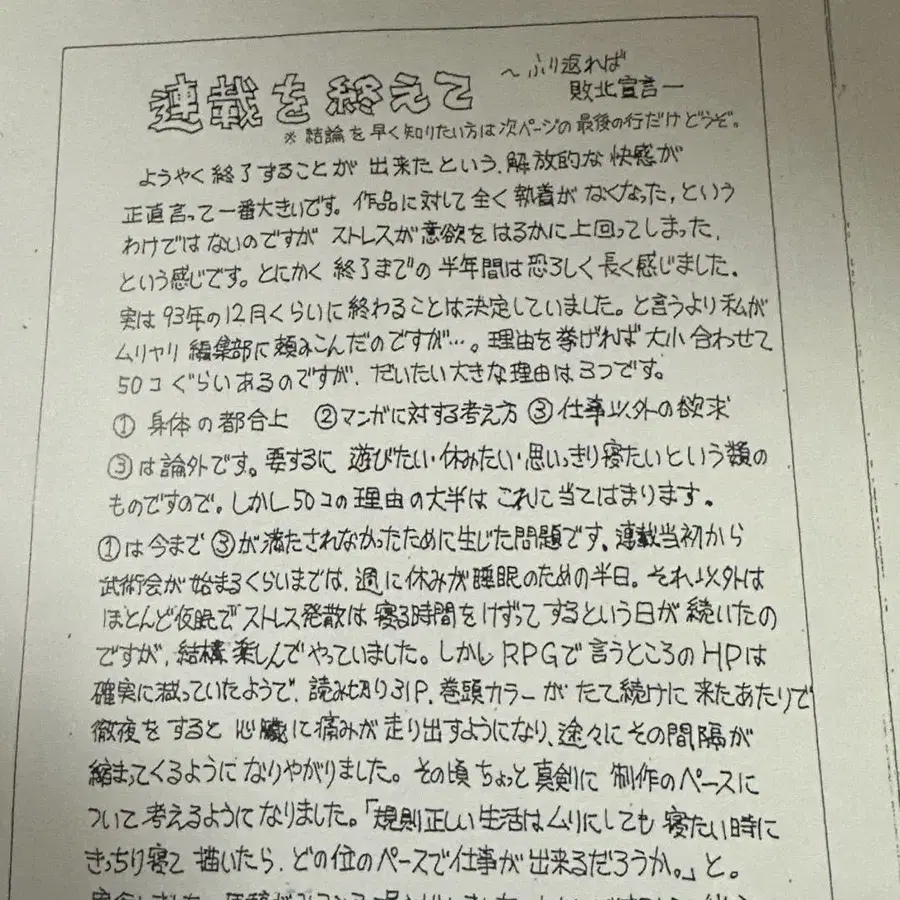 連載を終えて
～ふり返れば
敗北宣言ー
※結論を早く知りたい方は次ページの最後の行だけどうぞ。
ようやく終了することが出来たという、解放的な快感が
正直言って一番大きいです。作品に対して全く執着がなくなった、という
わけではないのですがストレスが意欲をはるかに上回ってしまった、
という感じです。とにかく終了までの半年間は恐ろしく長く感じました。
実は93年の12月くらいに終わることは決定していました。と言うより私が
ムリヤリ編集部に頼みこんだのですが…。理由を挙げれば大小合わせて
50コぐらいあるのですが、だいたい大きな理由は3つです。
①身体の都合上 ②マンガに対する考え方 ③仕事以外の欲求
③は論外です。要するに遊びたい・休みたい・思いっきり寝たいという類の
ものですので。しかし50コの理由の大半はこれに当てはまります。
①は今まで③が満たされなかったために生じた問題です。連載当初から
武術会が始まるくらいまでは、週に休みが睡眠のための半日。それ以外は
ほとんど仮眠でストレス発散は寝る時間をけずってするという日が続いたの
ですが、結構楽しんでやっていました。しかしRPGで言うところのHPは
確実に減っていたようで、読み切り31P、巻頭カラーがたて続けに来たあたりで
徹夜をすると心臓に痛みが走り出すようになり、途々にその間隔が
縮まってくるようになりやがりました。その頃ちょっと真剣に制作のペースに
ついて考えるようになりました。「規則正しい生活はムリにしても寝たい時に
きっちり寝て描いたら、どの位のペースで仕事が出来るだろうか。」と。